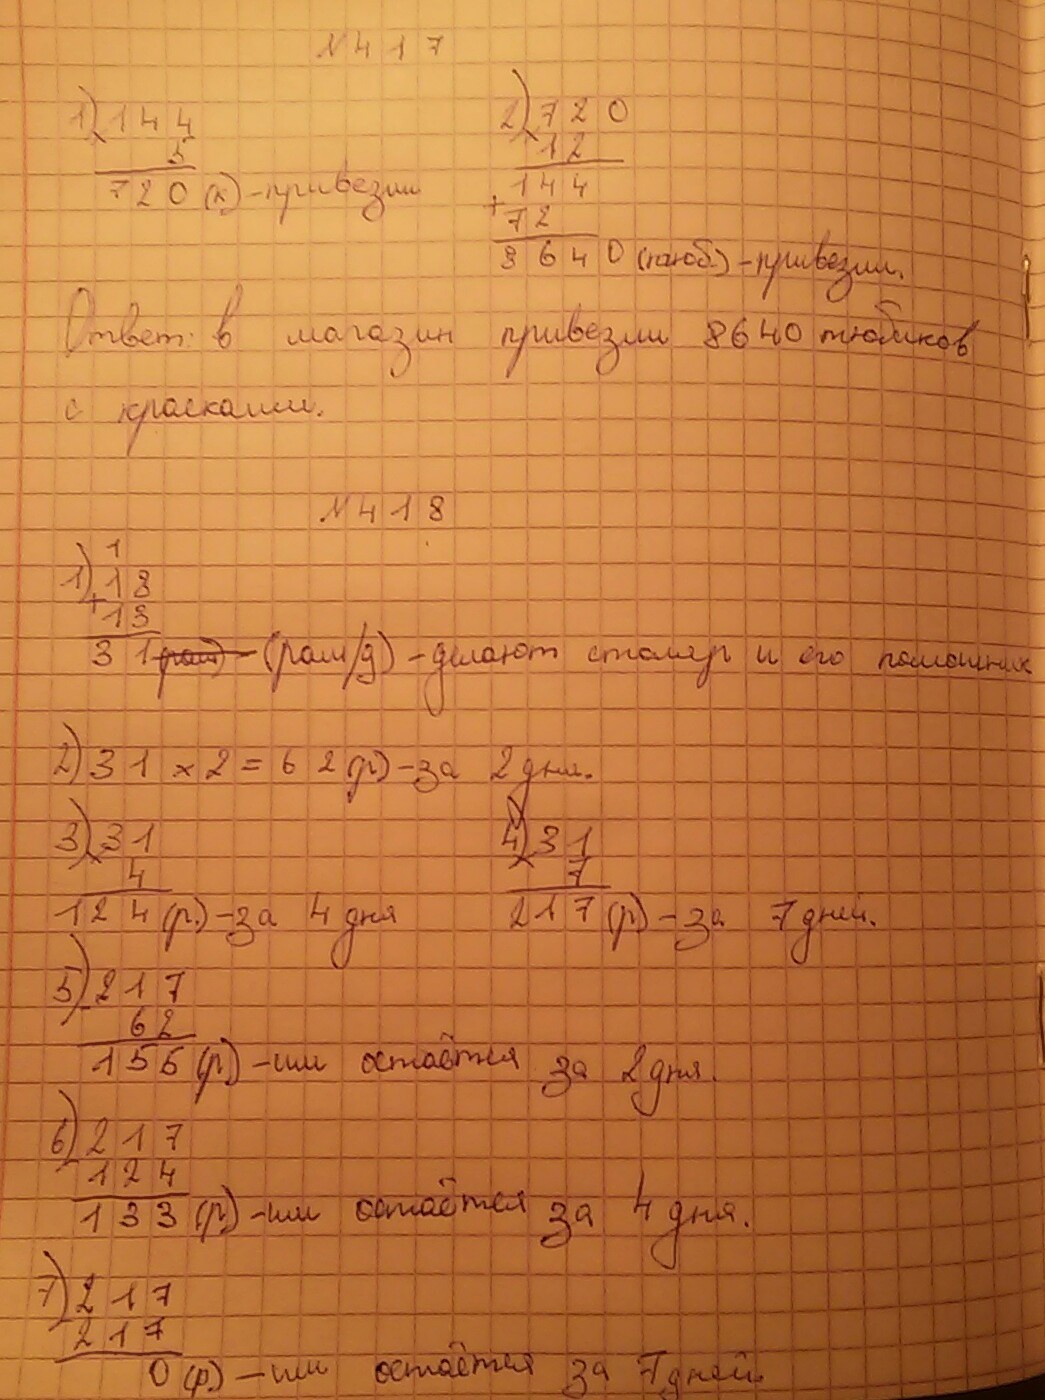 N 417
1) × 144
5
720 (к) - привезли
2) × 720
12
144
+
72
8640 (тюб.) - привезли.
Ответ: в магазин привезли 8640 тюбиков
с красками.
N 418
1
1) + 18
13
31 (рам/д) - делают столяр и его помошник
2) 31 × 2 = 62 (р) - за 2 дня.
3) × 31
4
124 (р.) - за 4 дня
4) × 31
7
217 (р) - за 7 дней.
5) - 217
62
156 (р) - им остаётся за 2 дня.
6) - 217
124
133 (р) - им остаётся за 4 дня.
7) - 217
217
0 (р) - им остаётся за 7 дней.